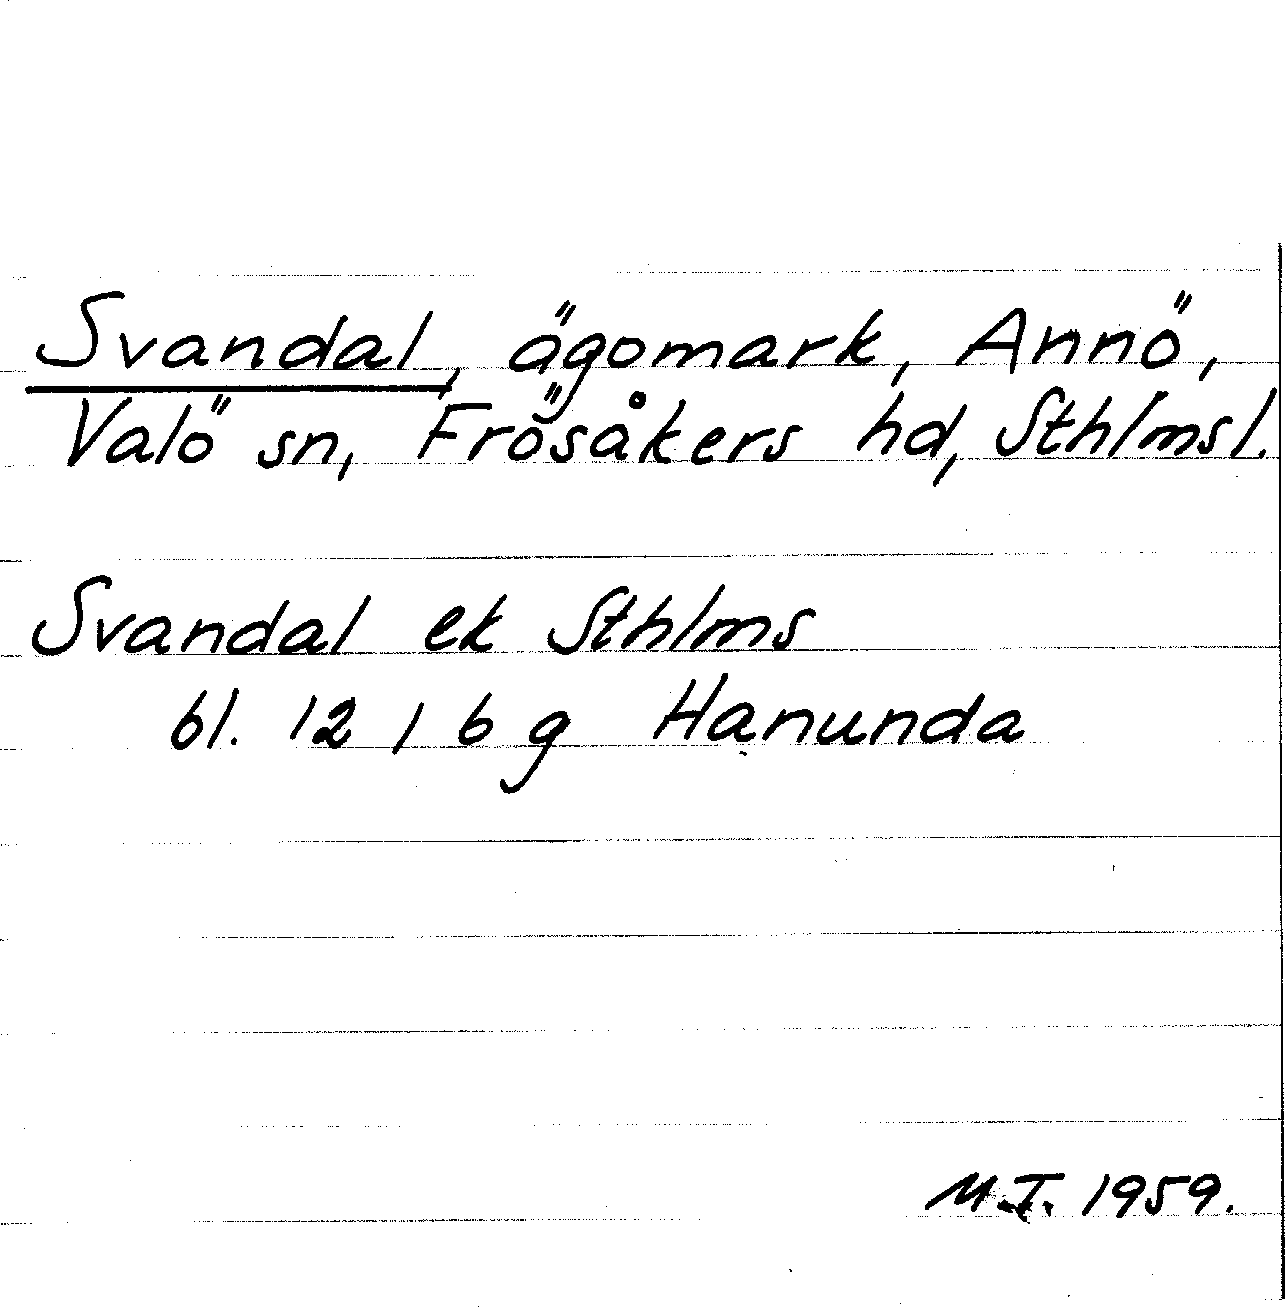 Svandal, ägomark, Annö,
Valö sn, Frösåkers hd, Sthlmsl.
Svandal ek Sthlms
bl. 12 I 6 g Hanunda
M.I. 1959.